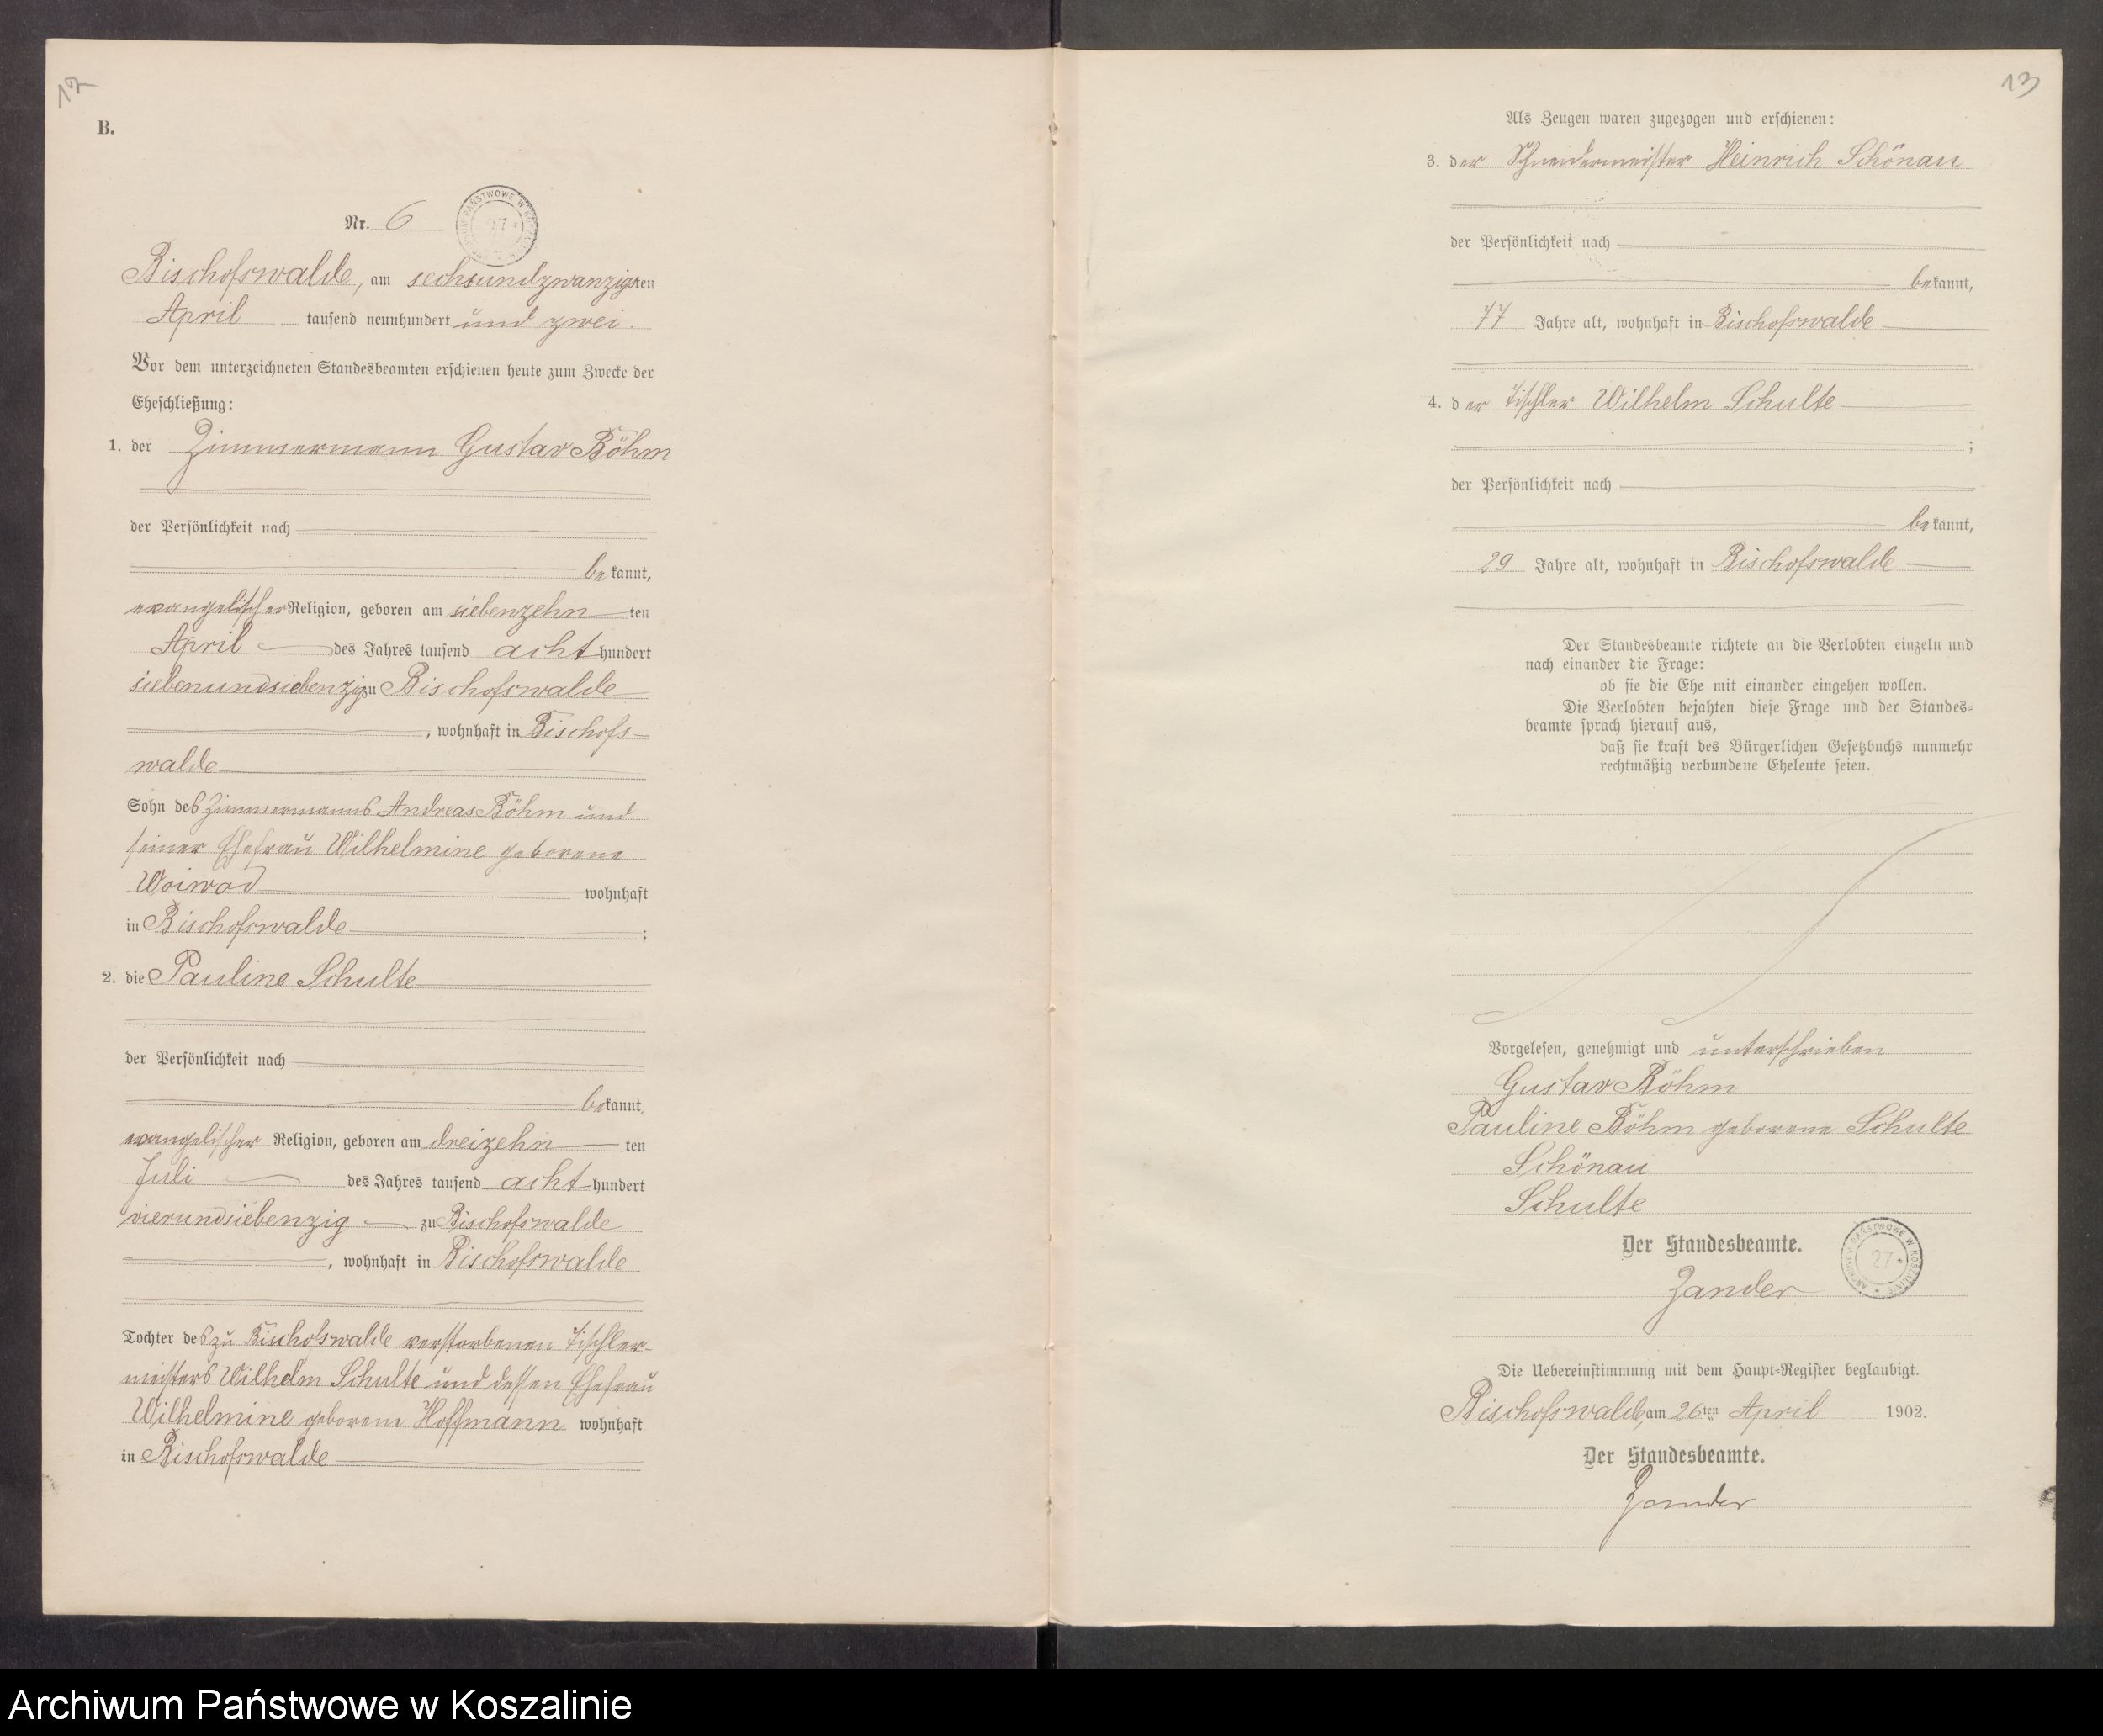 12
B.
Nr. 6
ARCHIWUM PAŃSTWOWE W KOSZALINIE 27
Bischofswalde, am sechsundzwanzigsten
April tausend neunhundert und zwei.
Vor dem unterzeichneten Standesbeamten erschienen heute zum Zwecke der
Eheschließung:
1. der Zimmermann Gustav Böhm
der Persönlichkeit nach
bekannt,
evangelischer Religion, geboren am siebenzehn ten
April des Jahres tausend acht hundert
siebenundsiebenzig zu Bischofswalde
, wohnhaft in Bischofs-
walde
Sohn des Zimmermanns Andreas Böhm und
seiner Ehefrau Wilhelmine geborene
Woiwod wohnhaft
in Bischofswalde ;
2. die Pauline Schulte
der Persönlichkeit nach
bekannt,
evangelischer Religion, geboren am dreizehn ten
Juli des Jahres tausend acht hundert
vierundsiebenzig zu Bischofswalde
, wohnhaft in Bischofswalde
Tochter des zu Bischofswalde verstorbenen Tischler-
meisters Wilhelm Schulte und dessen Ehefrau
Wilhelmine geborene Hoffmann wohnhaft
in Bischofswalde
13
Als Zeugen waren zugezogen und erschienen:
3. der Schneidermeister Heinrich Schönau
der Persönlichkeit nach
bekannt,
Jahre alt, wohnhaft in Bischofswalde
4. der Tischler Wilhelm Schulte
;
der Persönlichkeit nach
bekannt,
29 Jahre alt, wohnhaft in Bischofswalde
Der Standesbeamte richtete an die Verlobten einzeln und
nach einander die Frage:
ob sie die Ehe mit einander eingehen wollen.
Die Verlobten bejahten diese Frage und der Standes-
beamte sprach hierauf aus,
daß sie kraft des Bürgerlichen Gesetzbuchs nunmehr
rechtmäßig verbundene Eheleute seien.
Vorgelesen, genehmigt und unterschrieben
Gustav Böhm
Pauline Böhm geborene Schulte
Schönau
Schulte
Der Standesbeamte.
ARCHIWUM PAŃSTWOWE W KOSZALINIE 27
Zander
Die Uebereinstimmung mit dem Haupt-Register beglaubigt.
Bischofswalde, am 26ten April 1902.
Der Standesbeamte.
Zander
Archiwum Państwowe w Koszalinie